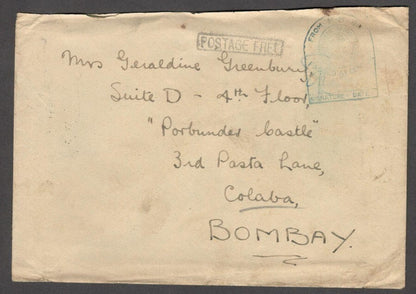 POSTAGE FREE
FROM
Mrs Geraldine Greenbury,
Suite D - 4th Floor,
"Porbunder Castle"
3rd Pasta Lane,
Colaba,
BOMBAY.
SIGNATURE DATE